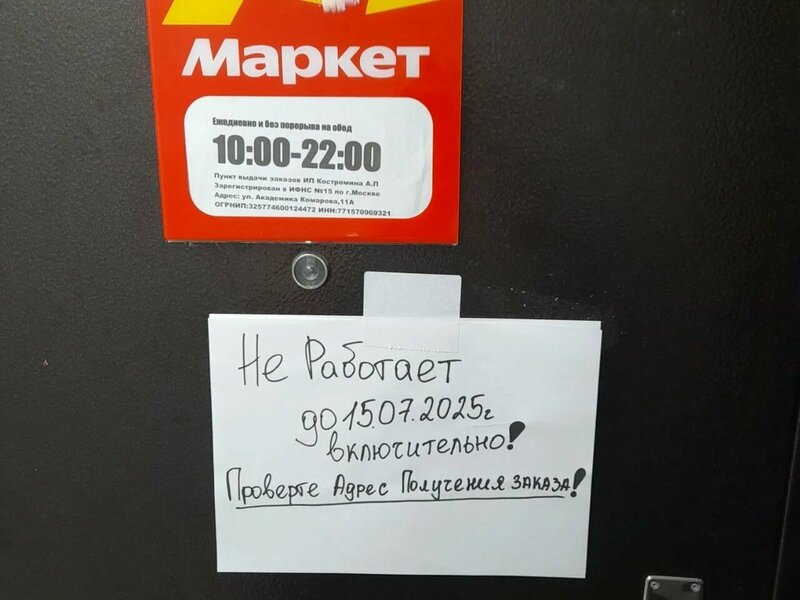 Маркет
Ежедневно и без перерыва на обед
10:00-22:00
Пункт выдачи заказов ИП Костромина А.П
Зарегистрирован в ИФНС №15 по г.Москве
Адрес: ул. Академика Комарова,11А
ОГРНИП:325774600124472 ИНН:771570969321
Не Работает
до 15.07.2025г
включительно!
Проверте Адрес Получения ЗАКАЗА!